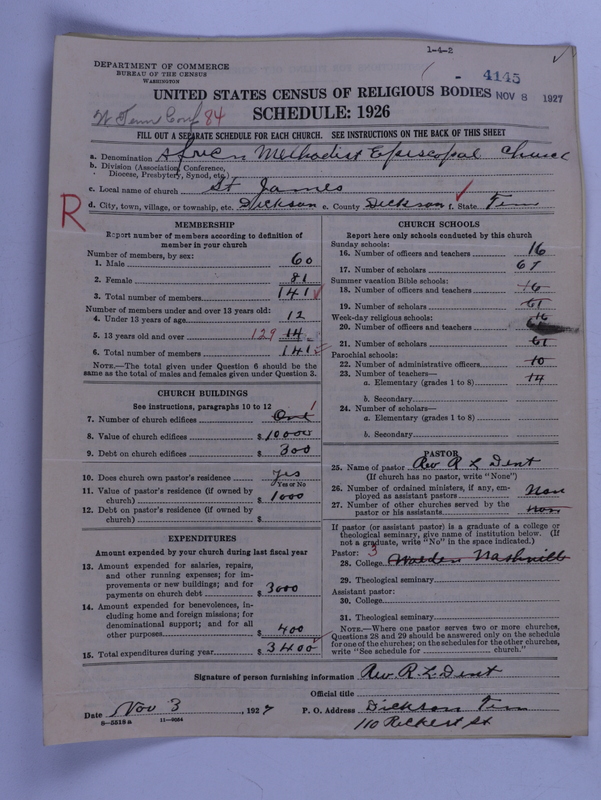 1-4-2
DEPARTMENT OF COMMERCE
BUREAU OF THE CENSUS
WASHINGTON
4145
UNITED STATES CENSUS OF RELIGIOUS BODIES NOV 8 1927
W Tenn Conf 84
SCHEDULE: 1926
FILL OUT A SEPARATE SCHEDULE FOR EACH CHURCH. SEE INSTRUCTIONS ON THE BACK OF THIS SHEET
a. Denomination African Methodist Episcopal Church
b. Division (Association, Conference, Diocese, Presbytery, Synod, etc.)
c. Local name of church St James
R
d. City, town, village, or township, etc. Dickson e. County Dickson f. State Tenn
MEMBERSHIP
Report number of members according to definition of member in your church
Number of members, by sex:
1. Male 60
2. Female 81
3. Total number of members 141
Number of members under and over 13 years old:
4. Under 13 years of age 12
5. 13 years old and over 129 14
6. Total number of members 141
NOTE.—The total given under Question 6 should be the same as the total of males and females given under Question 3.
CHURCH BUILDINGS
See instructions, paragraphs 10 to 12
7. Number of church edifices One 1
8. Value of church edifices $10000
9. Debt on church edifices $300
10. Does church own pastor's residence? Yes
Yes or No
11. Value of pastor's residence (if owned by church) $1000
12. Debt on pastor's residence (if owned by church) $
EXPENDITURES
Amount expended by your church during last fiscal year
13. Amount expended for salaries, repairs, and other running expenses; for improvements or new buildings; and for payments on church debt $3000
14. Amount expended for benevolences, including home and foreign missions; for denominational support; and for all other purposes $400
15. Total expenditures during year $3400
CHURCH SCHOOLS
Report here only schools conducted by this church
Sunday schools:
16. Number of officers and teachers 16
17. Number of scholars 67
Summer vacation Bible schools:
18. Number of officers and teachers 16
19. Number of scholars 61
Week-day religious schools:
20. Number of officers and teachers 16
21. Number of scholars 61
Parochial schools:
22. Number of administrative officers 10
23. Number of teachers—
a. Elementary (grades 1 to 8) 14
b. Secondary
24. Number of scholars—
a. Elementary (grades 1 to 8)
b. Secondary
PASTOR
25. Name of pastor Rev R L Dent
(If church has no pastor, write "None")
26. Number of ordained ministers, if any, employed as assistant pastors Non
27. Number of other churches served by the pastor or his assistants Non
If pastor (or assistant pastor) is a graduate of a college or theological seminary, give name of institution below. (If not a graduate, write "No" in the space indicated.)
Pastor: 3
28. College Walden Nashville
29. Theological seminary
Assistant pastor:
30. College
31. Theological seminary
NOTE.—Where one pastor serves two or more churches, Questions 28 and 29 should be answered only on the schedule for one of the churches; on the schedules for the other churches, write "See schedule for church."
Signature of person furnishing information Rev. R. L. Dent
Official title
Date Nov 3, 1927 P. O. Address Dickson Tenn
8-5518 a 11-9064
110 Rickert St